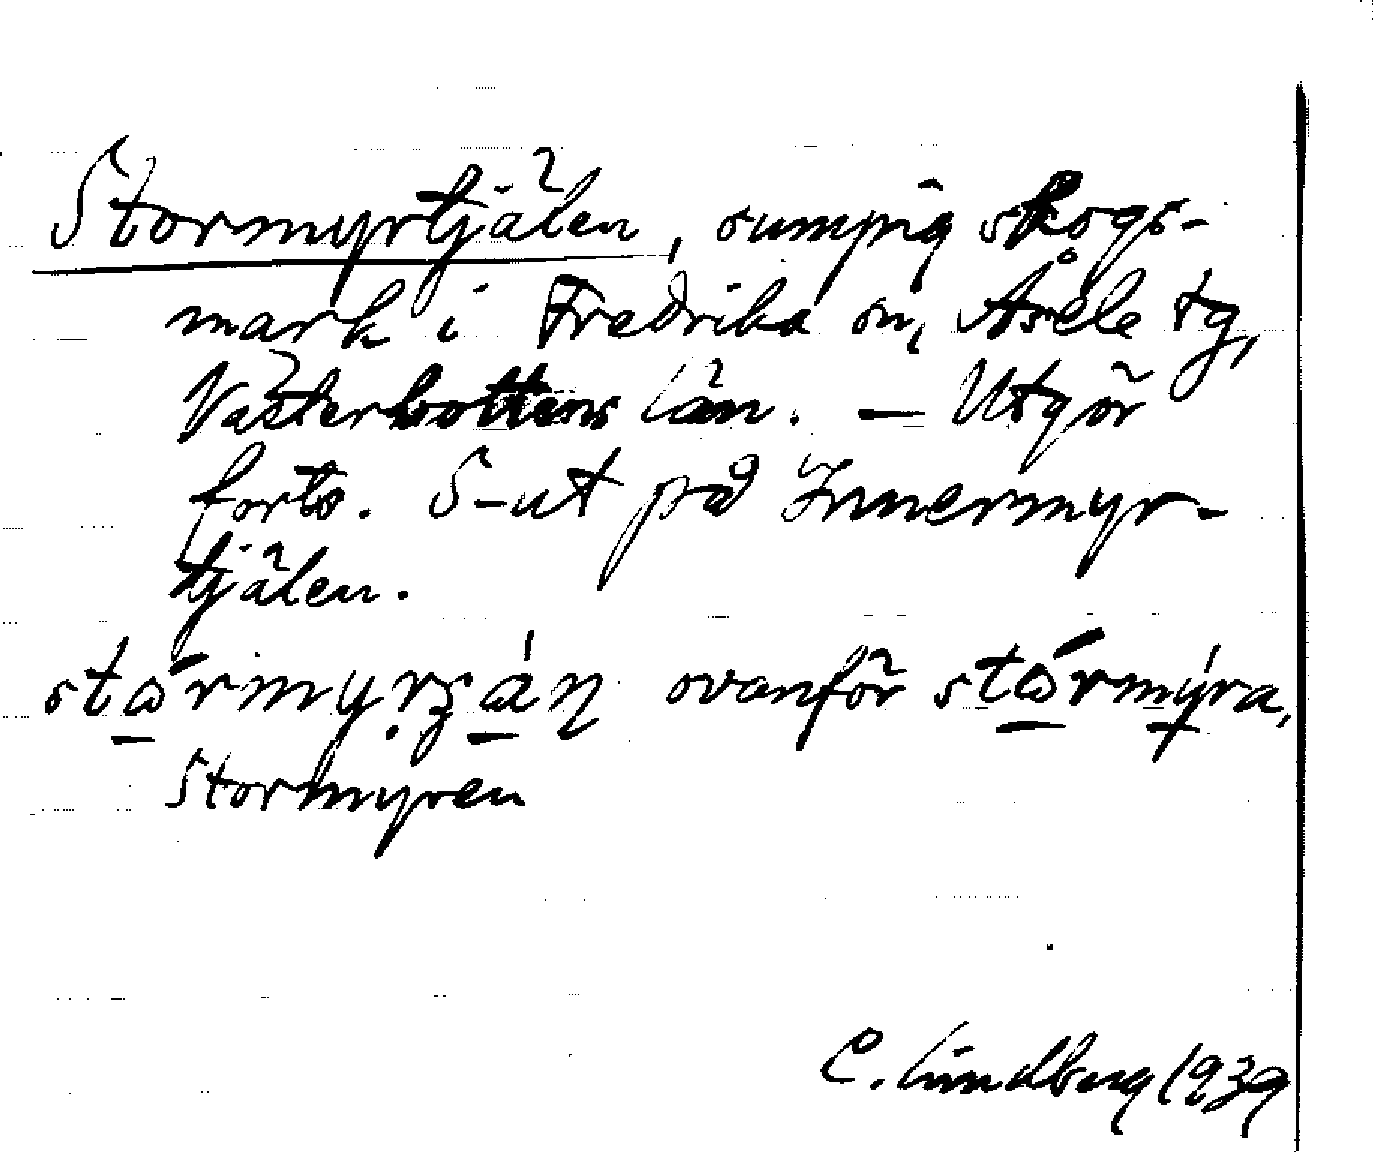 Stormyrtjälen, sumpig skogs-
mark i Fredrika sn, Åsele tg,
Västerbottens län. – Utgör
forts. S-ut på Innermyr-
tjälen.
ovanför
Stormyren
C. Lindberg 1939